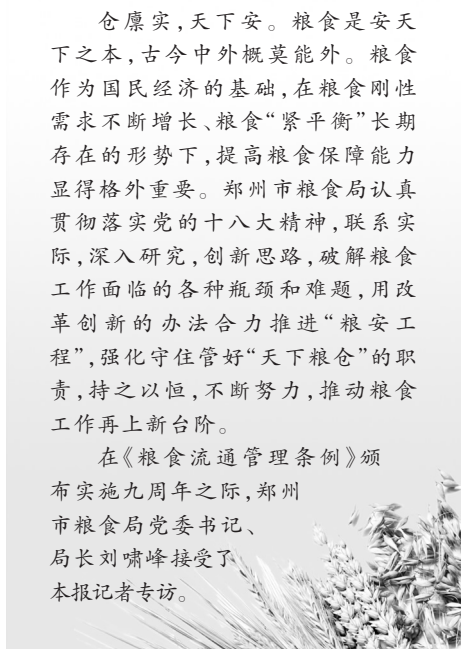 仓廪实,天下安。粮食是安天
下之本,古今中外概莫能外。粮食
作为国民经济的基础,在粮食刚性
需求不断增长、粮食“紧平衡”长期
存在的形势下,提高粮食保障能力
显得格外重要。郑州市粮食局认真
贯彻落实党的十八大精神,联系实
际,深入研究,创新思路,破解粮食
工作面临的各种瓶颈和难题,用改
革创新的办法合力推进“粮安工
程”,强化守住管好“天下粮仓”的职
责,持之以恒,不断努力,推动粮食
工作再上新台阶。
在《粮食流通管理条例》颁
布实施九周年之际,郑州
市粮食局党委书记、
局长刘啸峰接受了
本报记者专访。